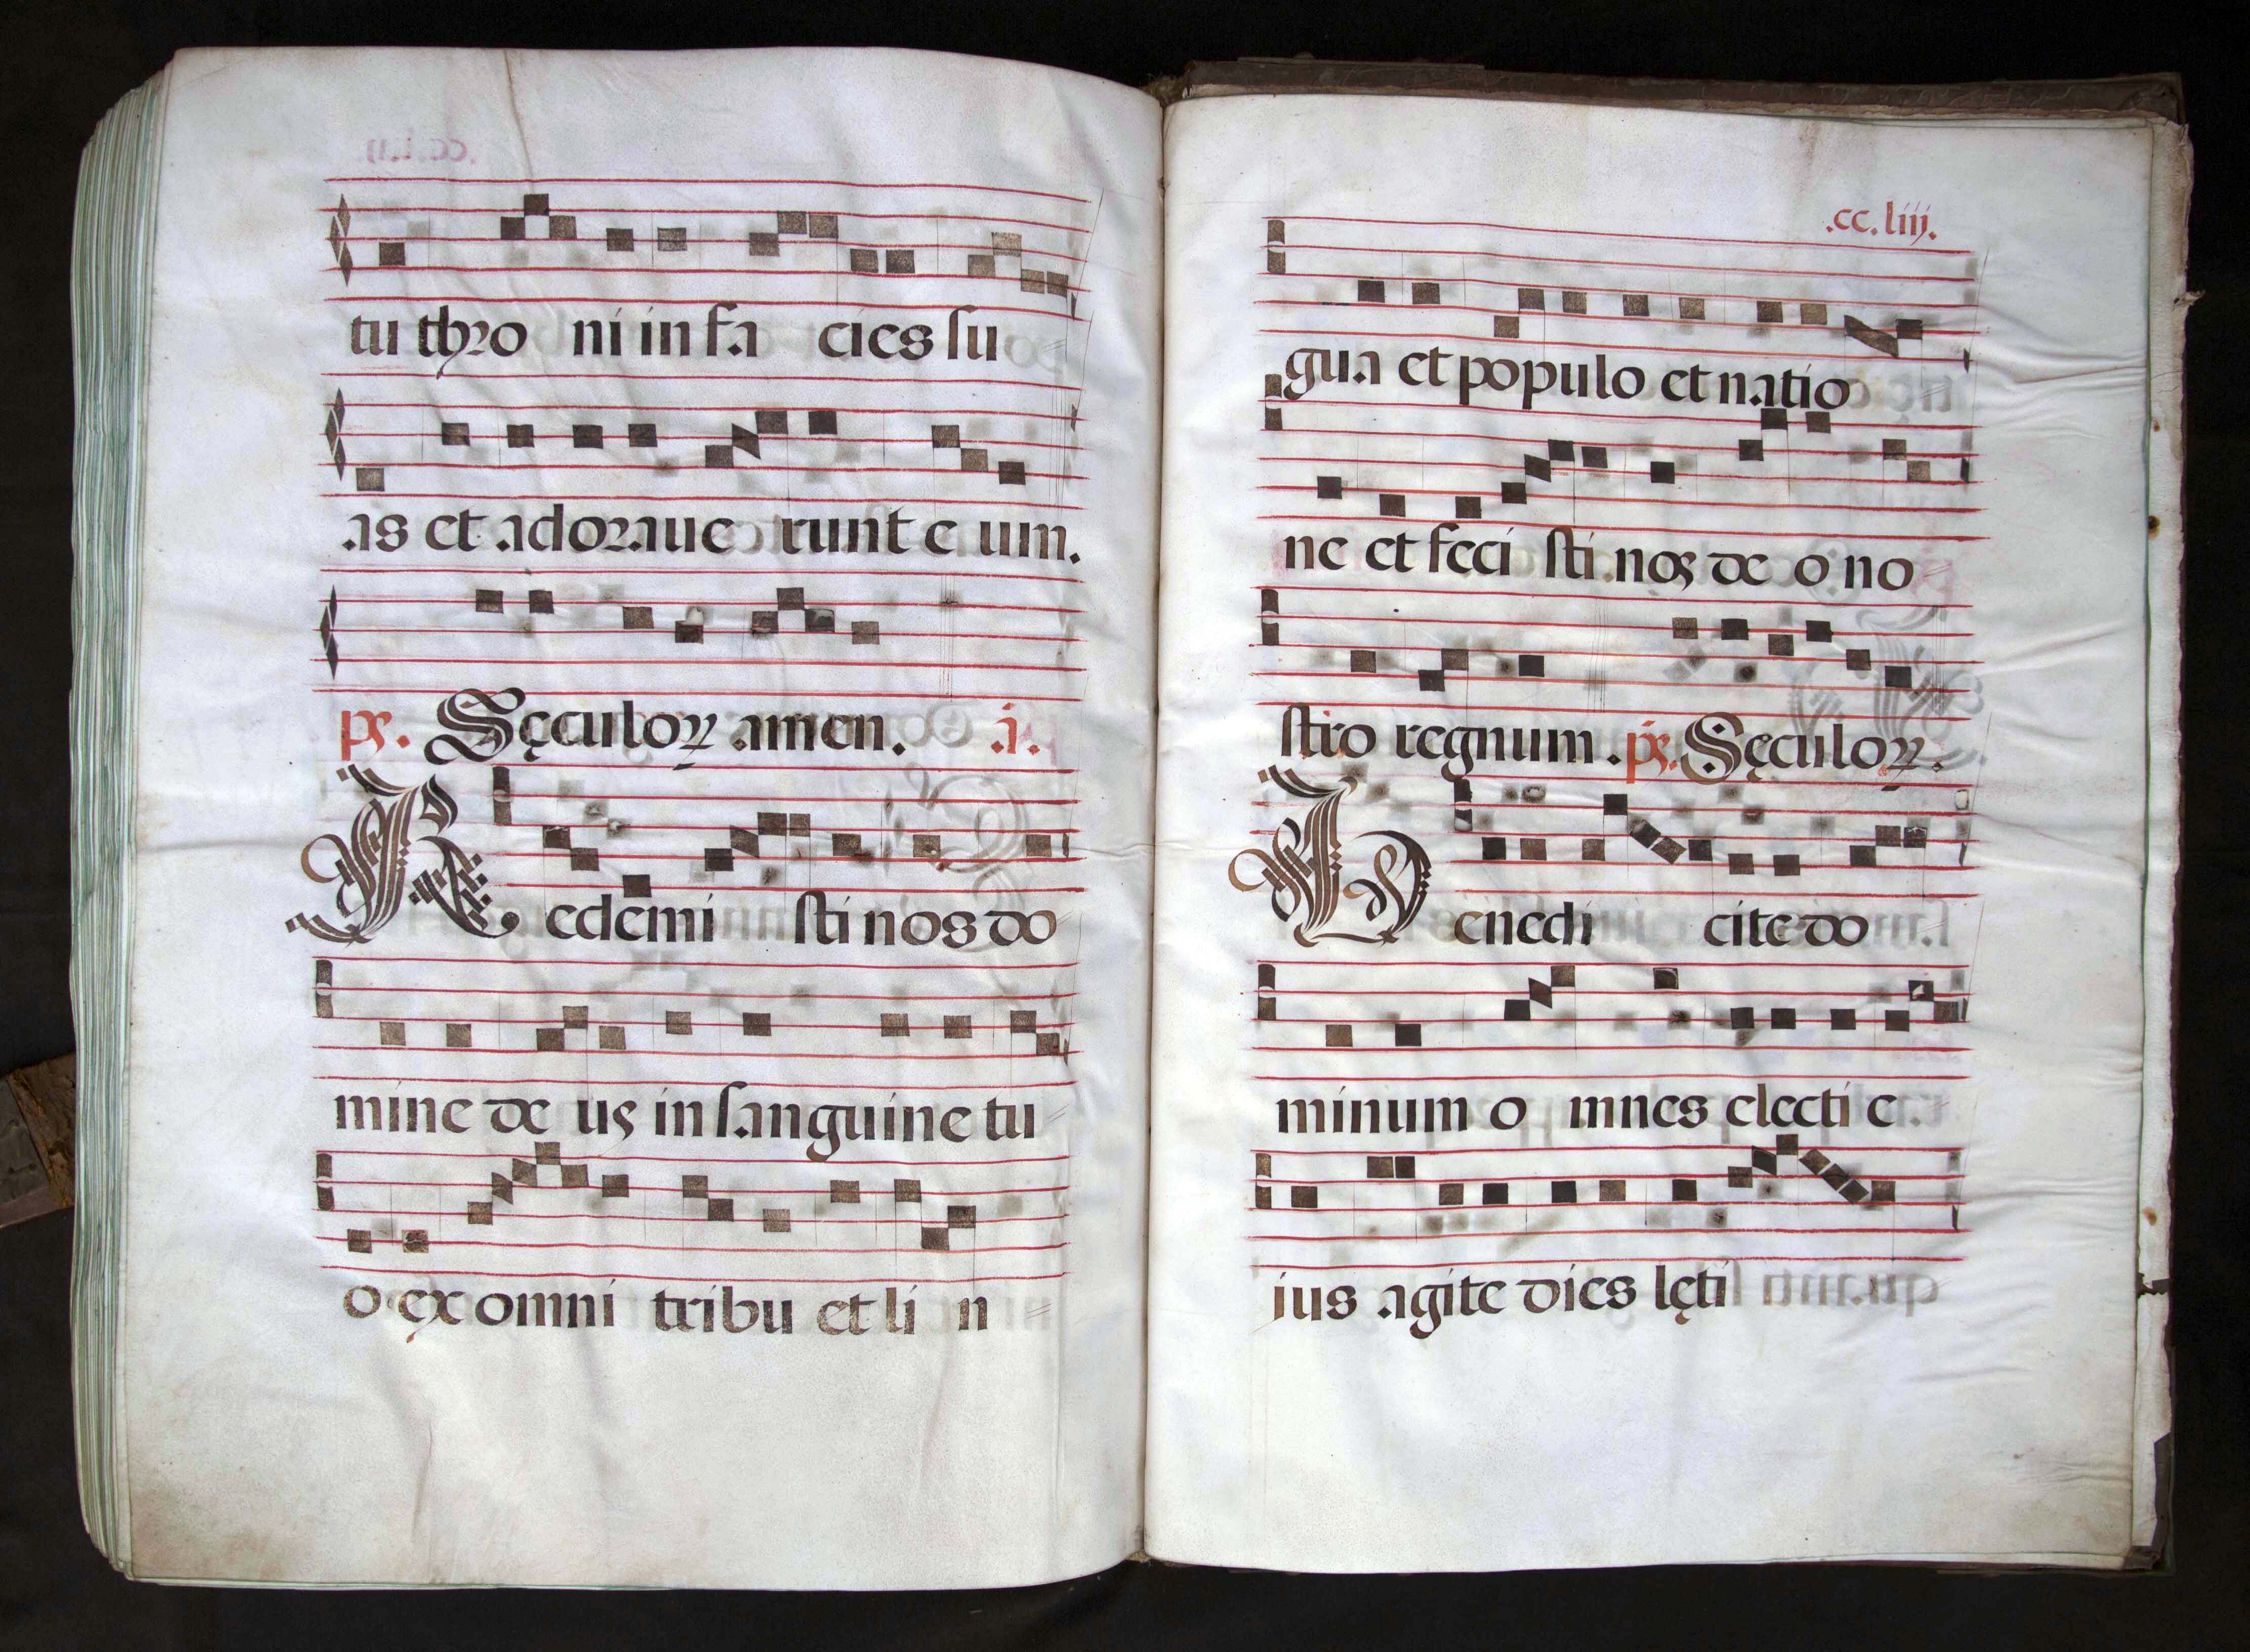 tu thro ni in fa cies su
as et adoraue runt e um.
ps. Sęculoꝝ amen. a.
R edemi sti nos do
mine de us in sanguine tu
o ex omni tribu et li n
.cc.liij.
gua et populo et natio
ne et feci sti nos de o no
stro regnum. ps. Sęculoꝝ.
B enedi cite do
minum o mnes electi e
ius agite dies lęti